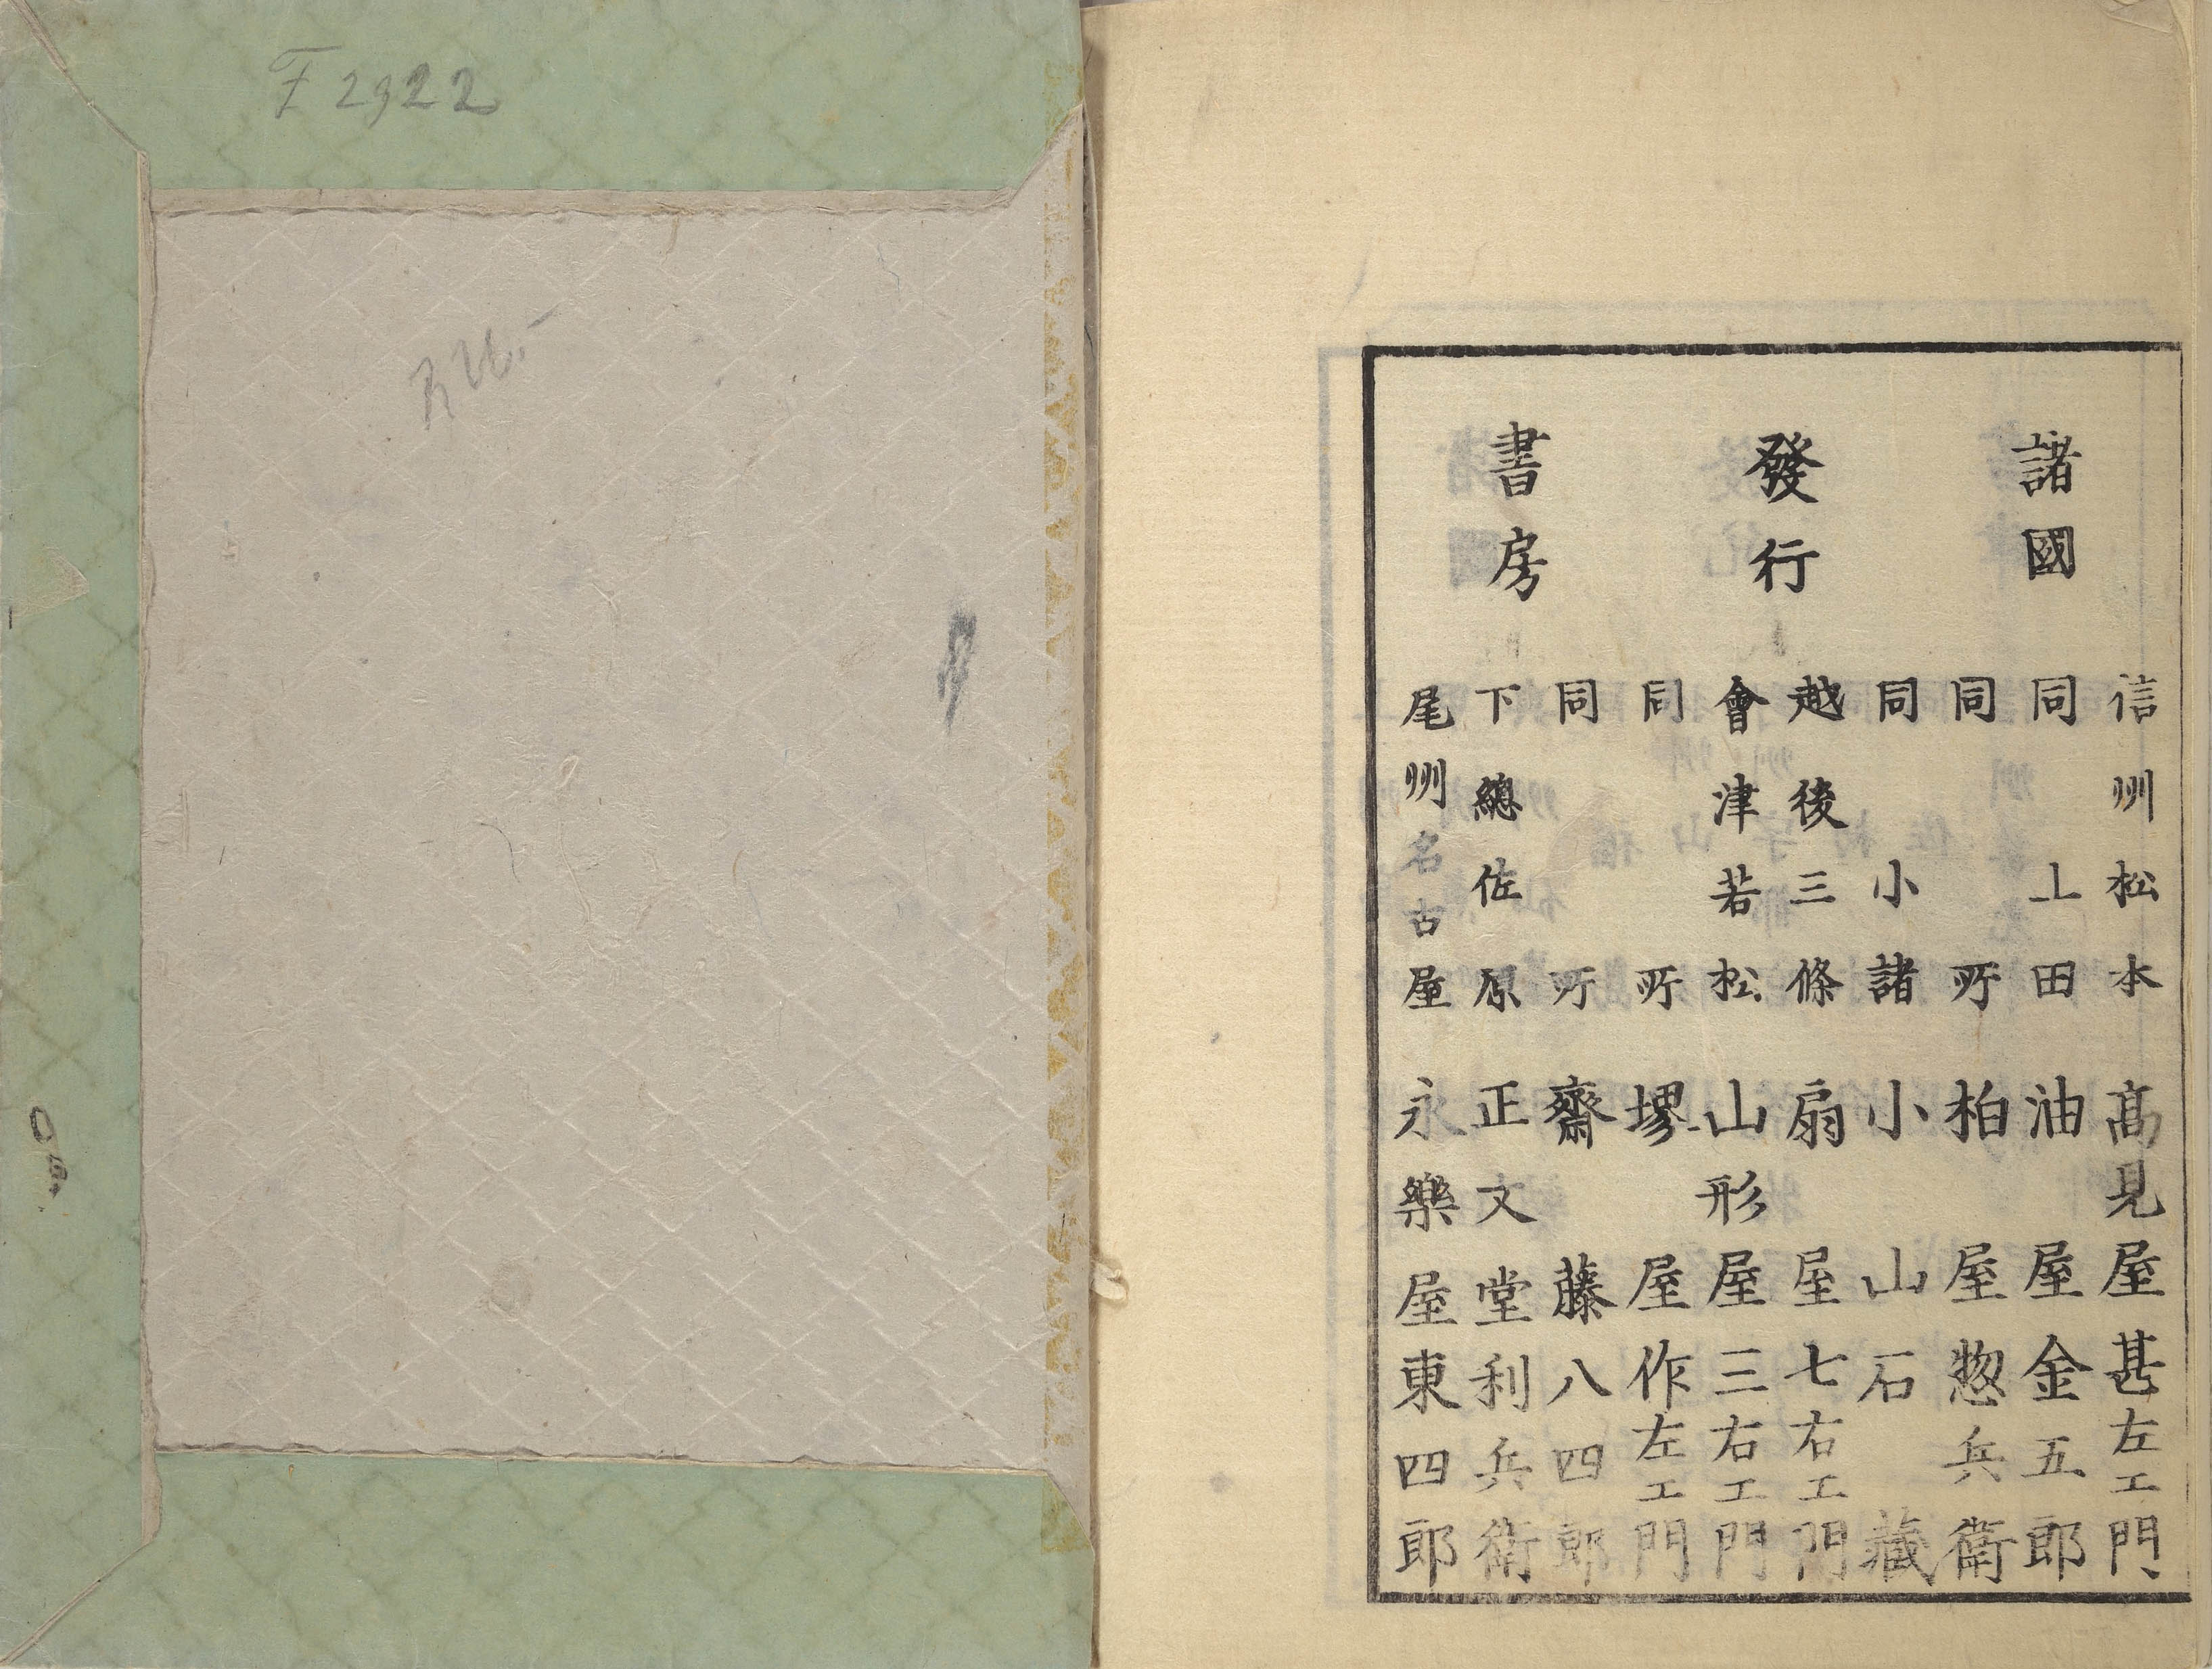 諸國
發行
書房
信州松本 髙見屋甚左エ門
同 上田 油屋金五郎
同 所 柏屋惣兵衛
同 小諸 小山石藏
越後三條 扇屋七右エ門
會津若松 山形屋三右エ門
同 所 堺屋作左エ門
同 所 齋藤八四郎
下總佐原 正文堂利兵衛
尾州名古屋 永樂屋東四郎
F 2922